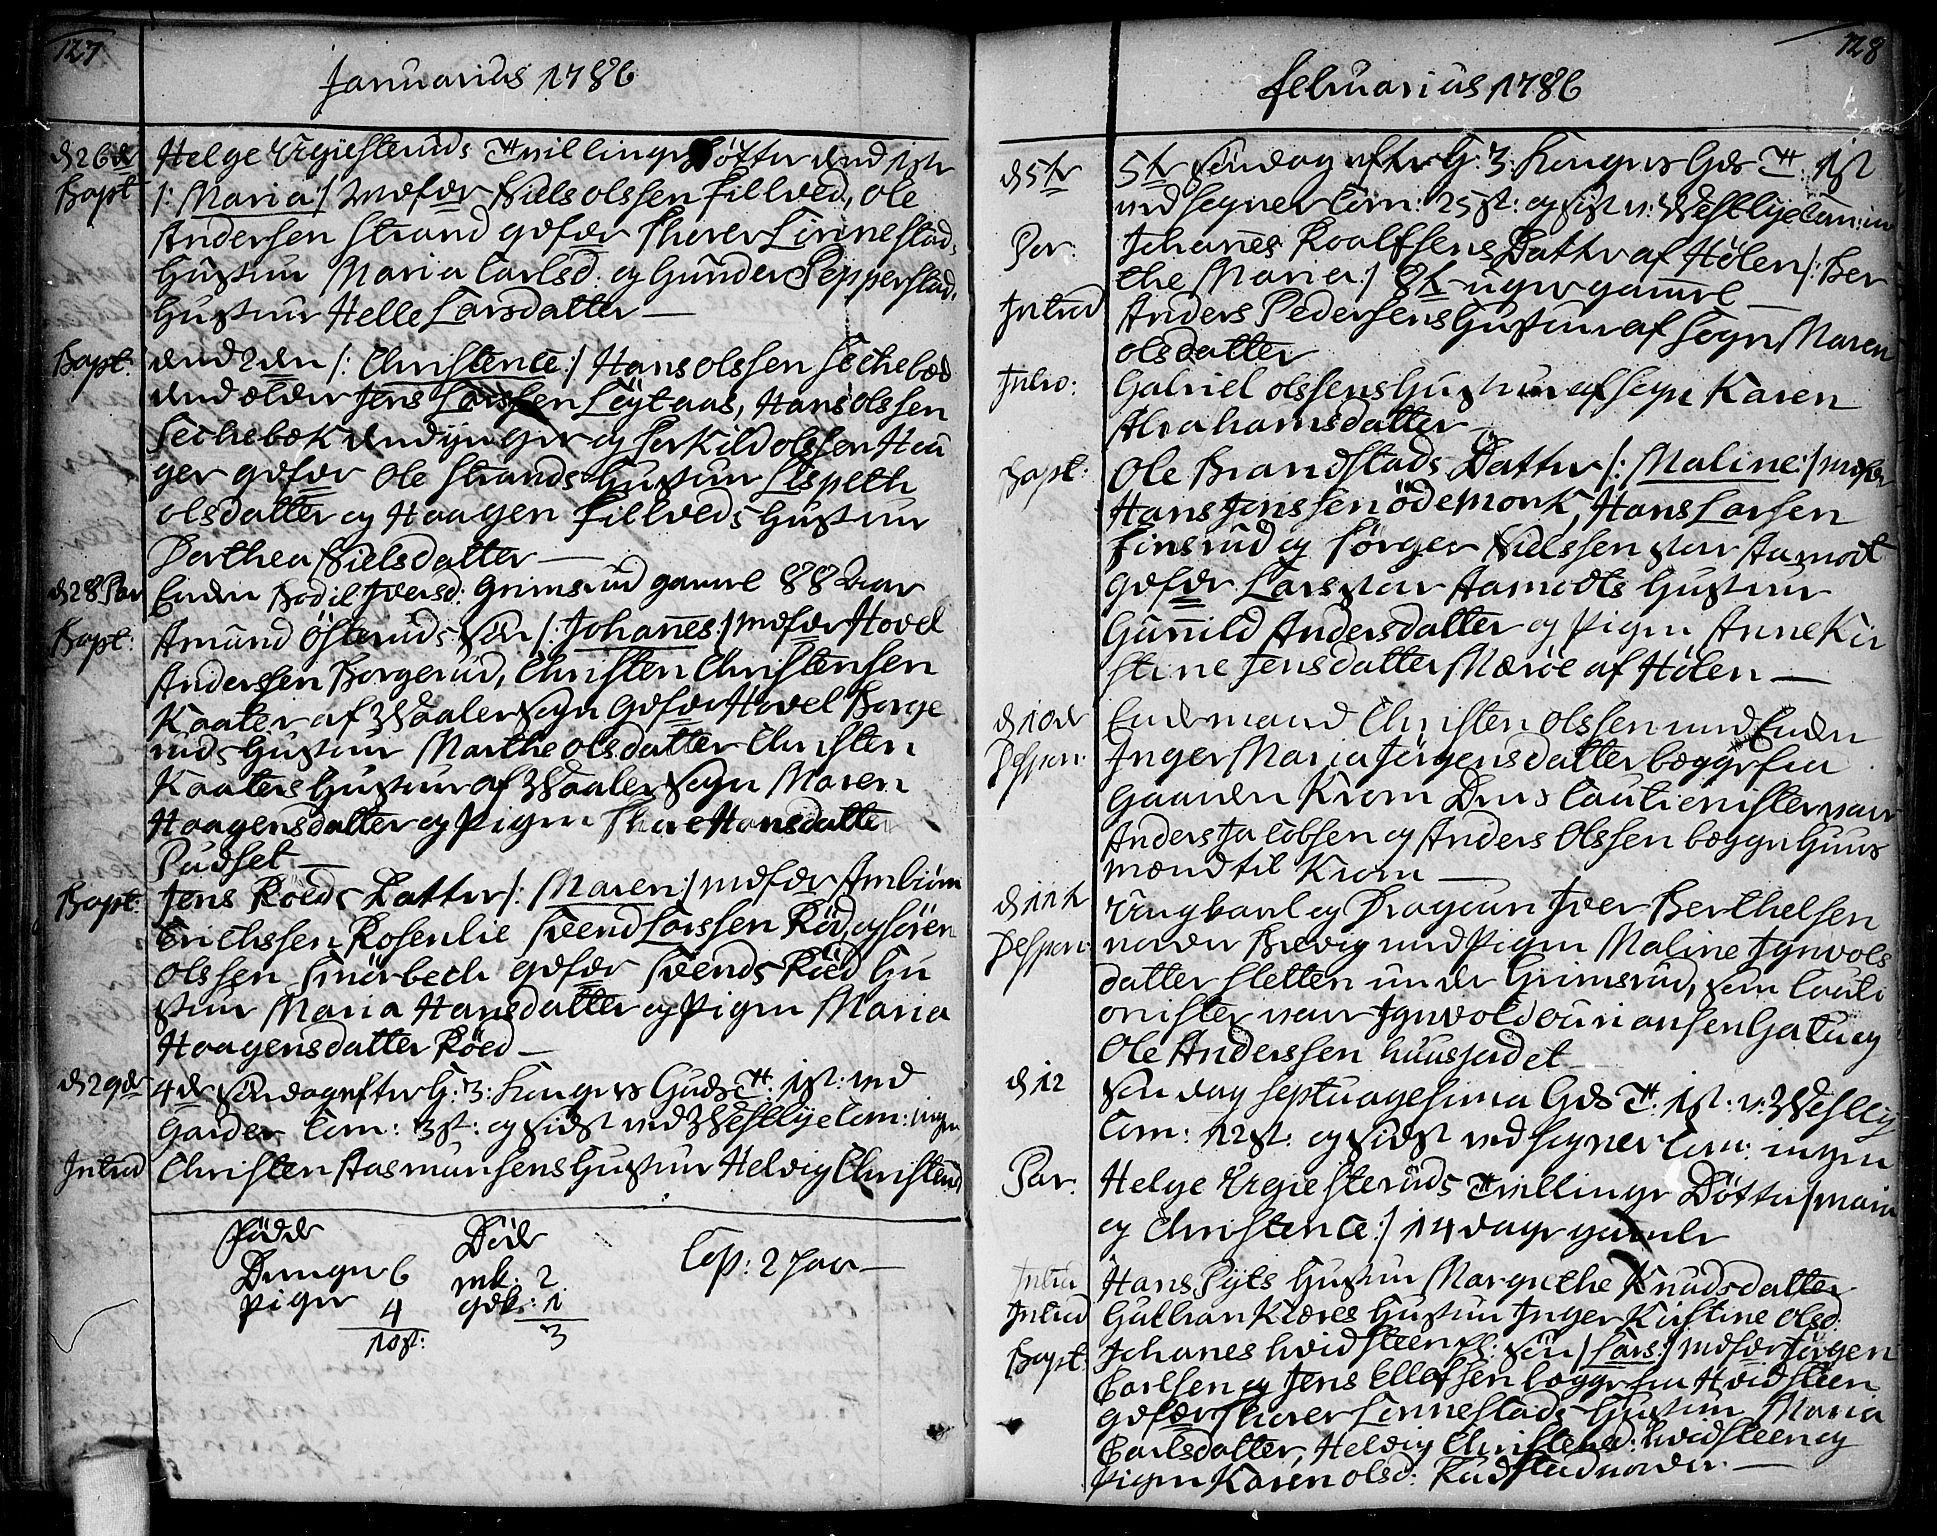 127
Januarius 1786
d 26de Helge Egiesteruds Tvillinge Døttre den 1ste
Bapt /: Maria :/ Mdfær Niels olssen Fillved, Ole
Andersen Strand qvfær Thorer Linnestads
Hustrue Maria Carlsd: og Gunder Pepperstad.
Hustrue Helle Larsdatter —
Bapt: den 2den /: Christence :/ Hans olssen Sechebæk
den ælder Jens Larssen Løytaas, Hans olssen
Sechebæk den yngre og Torkild olssen Hau
ger qvfær Ole Strands Hustrue Lispeth
olsdatter og Haagen Fillveds Hustrue
Dorthea Nielsdatter —
d 28 Par Enken Bodil Iversd: Grimsrud gamel 88 Aar
Bapt: Amund Østeruds Søn /: Johañes :/ mdfær Hovel
Anderssen Borgerud, Christen Christensen
Kaater af Waaler Sogn qvfær Hovel Borge
ruds Hustrue Marthe olsdatter Christen
Kaaters Hustrue af Waaler Sogn Maren
Haagensdatter og Pigen Thore Hansdatter
Rudset —
Bapt: Jens Roeds Datter /: Maren :/ mdfær Ambiøm
Erichssen Rosenlie Svend Larssen Röd, og Sören
olssen Smörbech qvfær Svends Röed Hu
strue Maria Hansdatter og Pigen Maria
Haagensdatter Röed —
d 29de 4de Søndag efter H: 3: Konger Guds T: 1st: ved
Garder Com: 3st: og sidst ved Westbye Com: ingen
Introd Christen Aasmunsens Hustrue Helvig Christensd
Födde
Drenge 6
Piger 4
10st:
Döde
mk: 2
qvk: 1
3
Cop: 2 Par —
128
Februarius 1786
d 5te 5te Søndag efter H: 3: Konger Gds T: 1st
ved Sogner Com: 25st: og sist v: Westbye Com: in
Par: Johañes Roalfsens Datter af Hölen /: Ber
the Maria :/ 8te uger gamel —
Introd Anders Pedersens Hustrue af Sogn Maren
olsdatter
Intro: Gabriel olssens Hustrue af Sogn Karen
Abrahamsdatter —
Bapt: Ole Brandstads Datter /: Maline :/ mdfær
Hans Jenssen ödemork, Hans Larsen
Finsrud og Jörger Nielssen stor Aamodt
qvfær Lars stor Aamodts Hustrue
Guñild Andersdatter og Pigen Anne Kir
stine Jensdatter Mæröe af Hölen —
d 10de Enkemand Christen olssen med Enken
Despon: Inger Maria Jörgensdatter begge fra
Gaarden Krom Deres Cautionister var
Anders Jacobsen og Anders Olssen begge Huus
mænd til Krom —
d 11te Ungkarl og Dragoun Iver Berthelsen
Despon: neder Brevig med Pigen Maline Ingvols
datter Sletten under Grimsrud, som Cauti
onister var Ingvold ouriansen Gatu og
Ole Anderssen huusjordet
d 12 Søndag Septuagesima Gds T: 1st: v: Westby
Com: 12st: og sidst ved Sogner Com: ingen
Par: Helge Egiesteruds Tvillinge Döttre /: Maria
og Christence :/ 14 dage gamle
Introd Hans Pyts Hustrue Margrethe Knudsdatter
Introd Gulbran Kiæres Hustrue Inger Kirstine olsd:
Bapt: Johanes hvidsteen Søn /: Lars :/ mdfær Jörgen
Carlsen og Jens Ellefsen begge fra Hvidsteen
qvfær Thorer Linnestads Hustrue Maria
Carlsdatter, Helvig Christensd: hvidsteen og
Pigen Karen olsd: Rudstad norder —